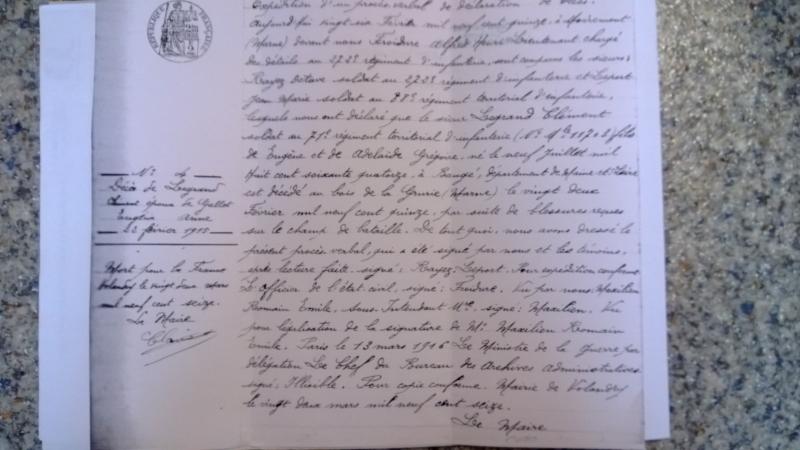 RÉPUBLIQUE FRANÇAISE
Expédition d'un procès verbal de déclaration de décès.
Aujourd'hui vingt six Février mil neuf cent quinze, à Moiremont
(Marne) devant nous Froidure Alfred Henri Lieutenant chargé
des détails au 272e régiment d'infanterie, sont comparus les sieurs:
Rayez Octave soldat au 272e régiment d'infanterie et Leport
Jean Marie soldat au 78e régiment territorial d'infanterie,
lesquels nous ont déclaré que le sieur Legrand Clément
soldat au 71e régiment territorial d'infanterie (No Mle 11702) fils
de Eugène et de Adelaide Grégoire, né le neuf Juillet mil
huit cent soixante quatorze, à Baugé, département de Maine et Loire
est décédé au bois de la Grurie (Marne) le vingt deux
Février mil neuf cent quinze, par suite de blessures reçues
sur le champ de bataille. De tout quoi, nous avons dressé le
présent procès verbal, qui a été signé par nous et les témoins,
après lecture faite, signé: Rayez, Leport. Pour expédition conforme
Le officier de l'état civil, signé: Froidure. Vu par nous Maxilien
Romain Emile, sous-Intendant Mre, signé: Maxilien. Vu
pour légalisation de la signature de Mr Maxilien Romain
Emile. Paris le 13 mars 1916 Le Ministre de la Guerre par
délégation Le Chef du Bureau des Archives Administratives
signé: Illisible. Pour copie conforme. Mairie de Volandry
le vingt deux mars mil neuf cent seize.
Le Maire
No 4
Décès de Legrand
Clément époux de Gallet
Eugénie
22 février 1915
Mort pour la France
Volandry le vingt deux mars
mil neuf cent seize.
Le Maire